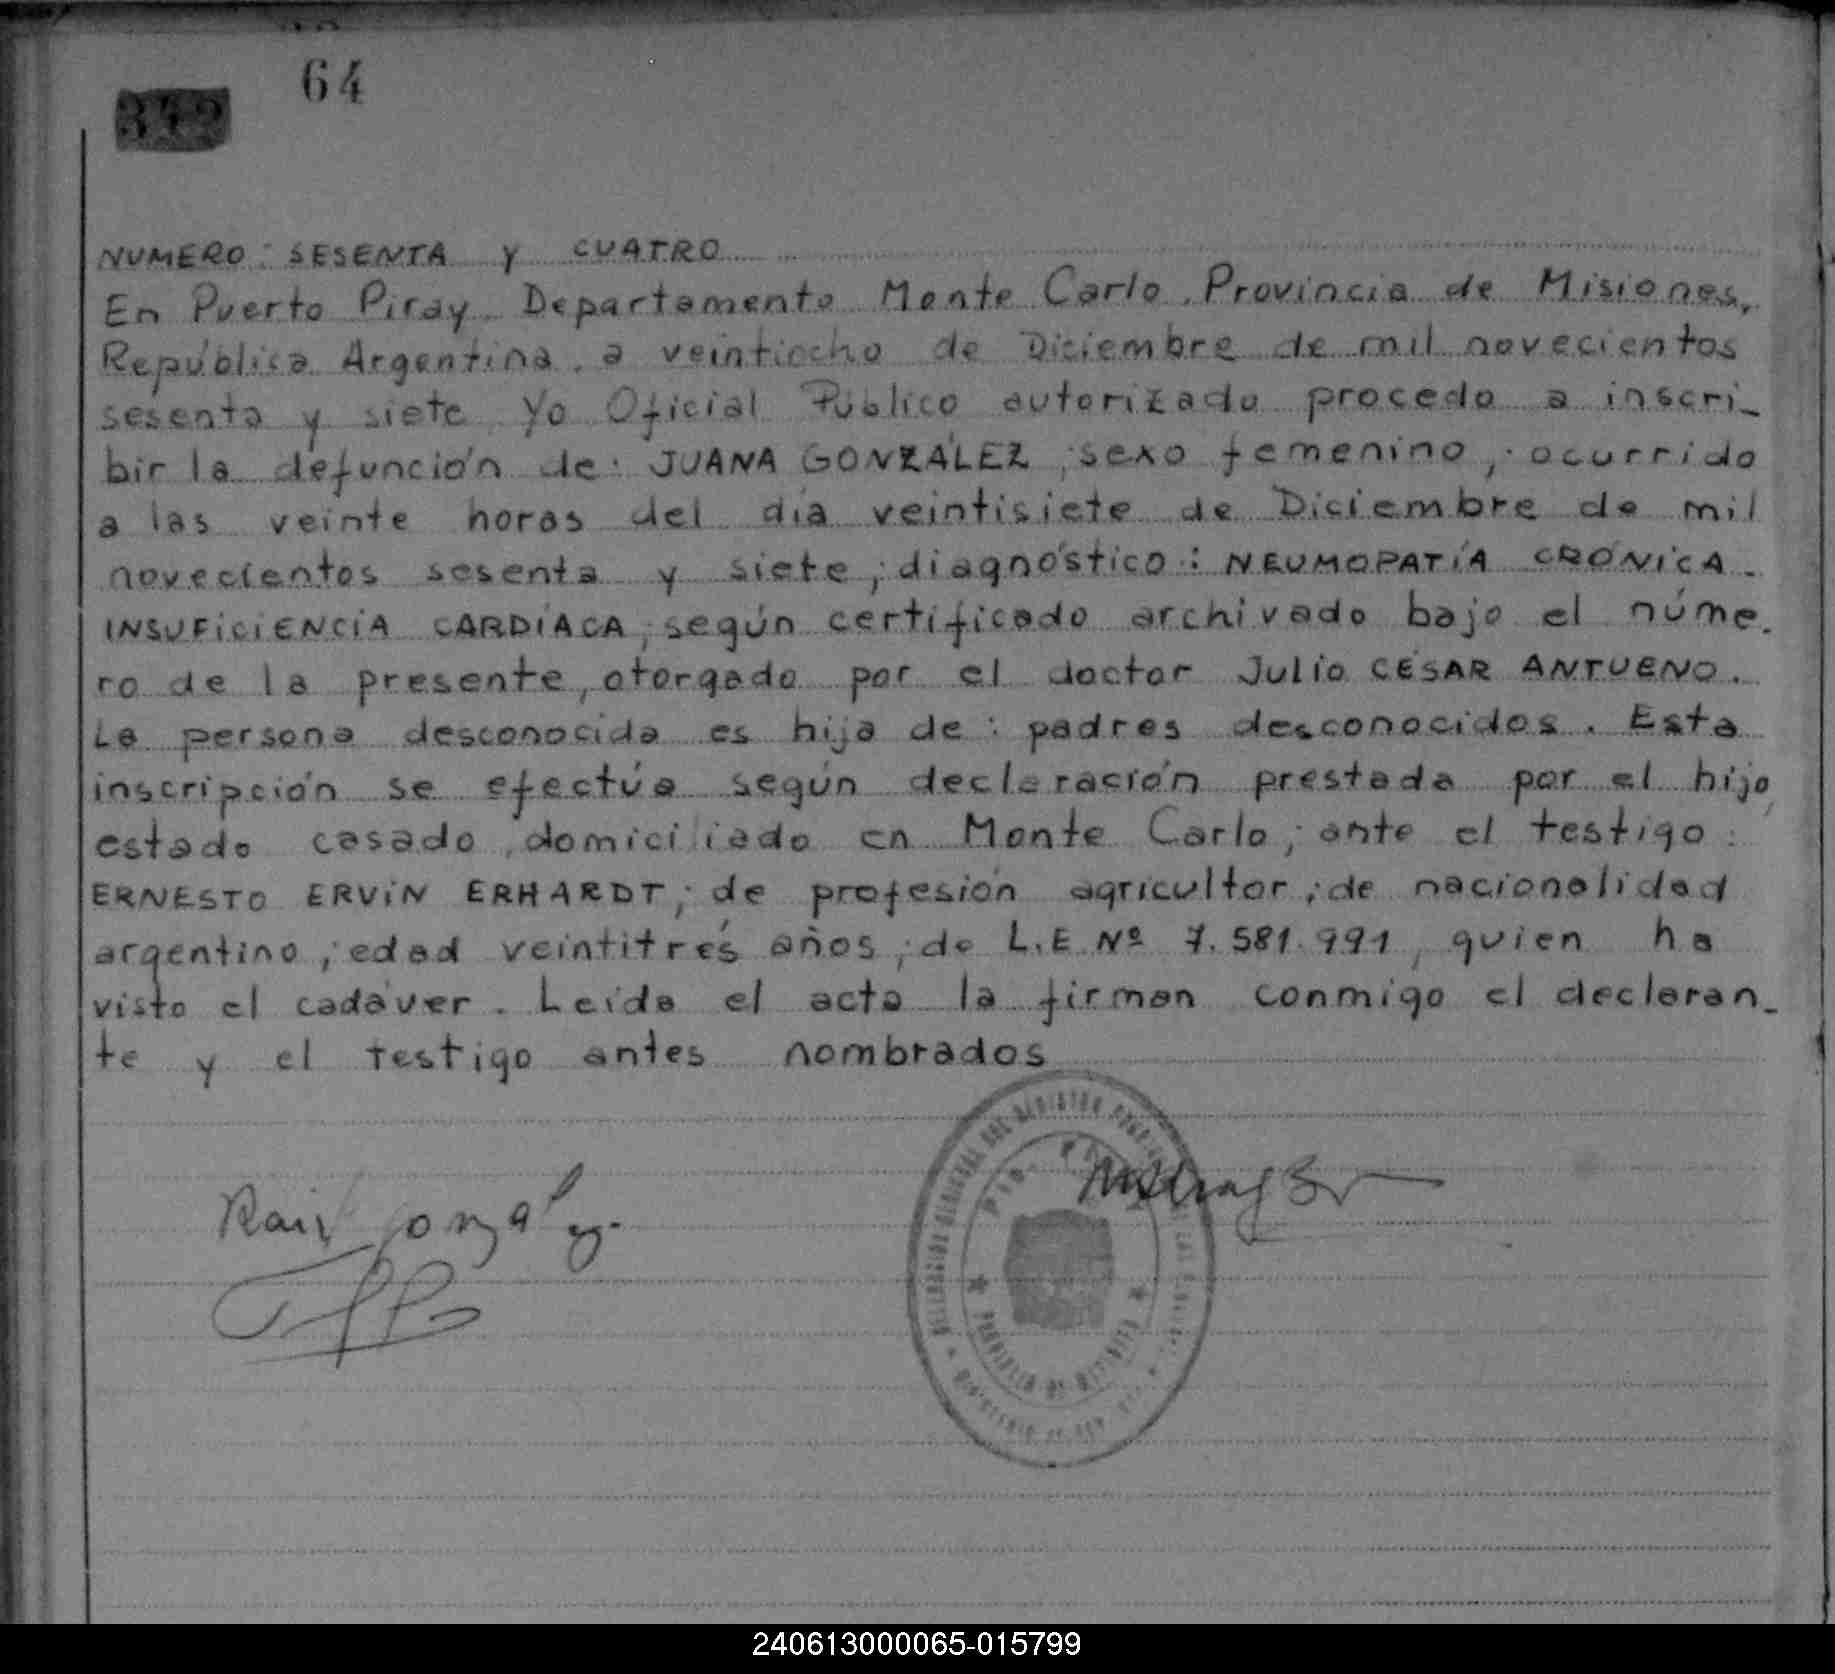 64
342
NUMERO: SESENTA y CUATRO
En Puerto Piray, Departamento Monte Carlo, Provincia de Misiones,
República Argentina, a veintiocho de Diciembre de mil novecientos
sesenta y siete, Yo Oficial Público autorizado procedo a inscri-
bir la defunción de: JUANA GONZÁLEZ; sexo femenino; ocurrido
a las veinte horas del día veintisiete de Diciembre de mil
novecientos sesenta y siete; diagnóstico: NEUMOPATÍA CRÓNICA-
INSUFICIENCIA CARDÍACA; según certificado archivado bajo el núme-
ro de la presente, otorgado por el doctor Julio CÉSAR ANTUENO.
La persona desconocida es hija de: padres desconocidos. Esta
inscripción se efectúa según declaración prestada por el hijo,
estado casado, domiciliado en Monte Carlo; ante el testigo:
ERNESTO ERVIN ERHARDT; de profesión agricultor; de nacionalidad
argentino; edad veintitrés años; de L.E Nº 7.581.991, quien ha
visto el cadáver. Leída el acta la firman conmigo el declaran-
te y el testigo antes nombrados
PROVINCIA DE MISIONES
240613000065-015799